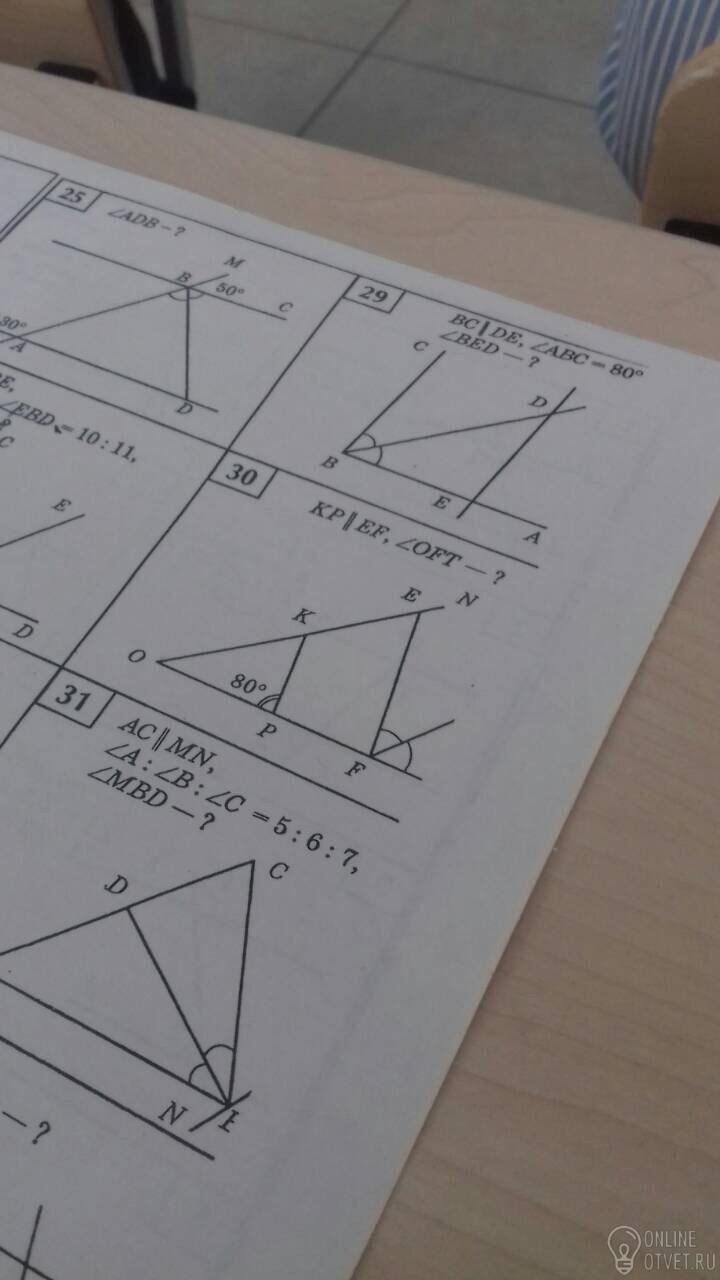 25
∠ADB – ?
M
B
50°
C
30°
A
D
∠EBD = 10 : 11,
C
E
D
29
BC ∥ DE, ∠ABC = 80°
∠BED — ?
C
D
B
E
A
30
KP ∥ EF, ∠OFT — ?
E
N
K
O
80°
P
F
31
AC ∥ MN,
∠A : ∠B : ∠C = 5 : 6 : 7,
∠MBD – ?
D
C
N
– ?
ONLINE
OTVET.RU